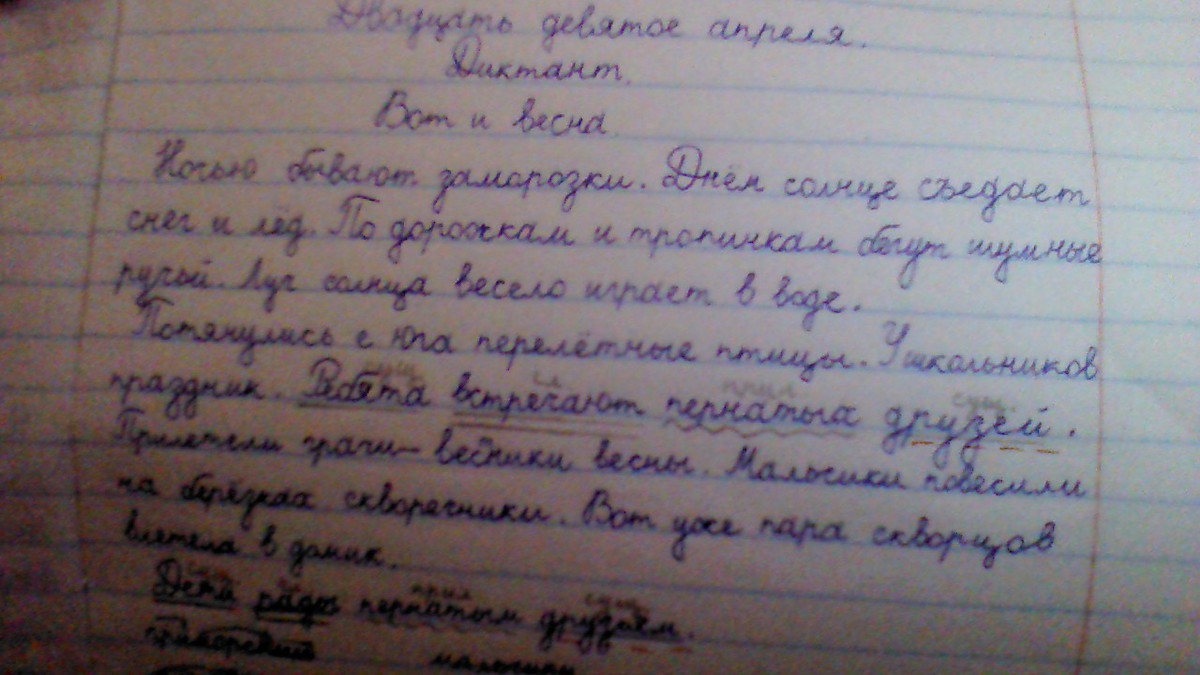 Двадцать девятое апреля.
Диктант.
Вот и весна.
Ночью бывают заморозки. Днём солнце съедает
снег и лёд. По дорожкам и тропинкам бегут шумные
ручьй. Луч солнца весело играет в воде.
Потянулись с юга перелётные птицы. У школьников
сущ. гл прил сущ.
праздник. Ребята встречают пернатых друзей.
Прилетели грачи – весники весны. Мальчики повесили
на берёзках скворечники. Вот уже пара скворцов
влетела в домик.
прил сущ.
Дети рады пернатым друзьям.